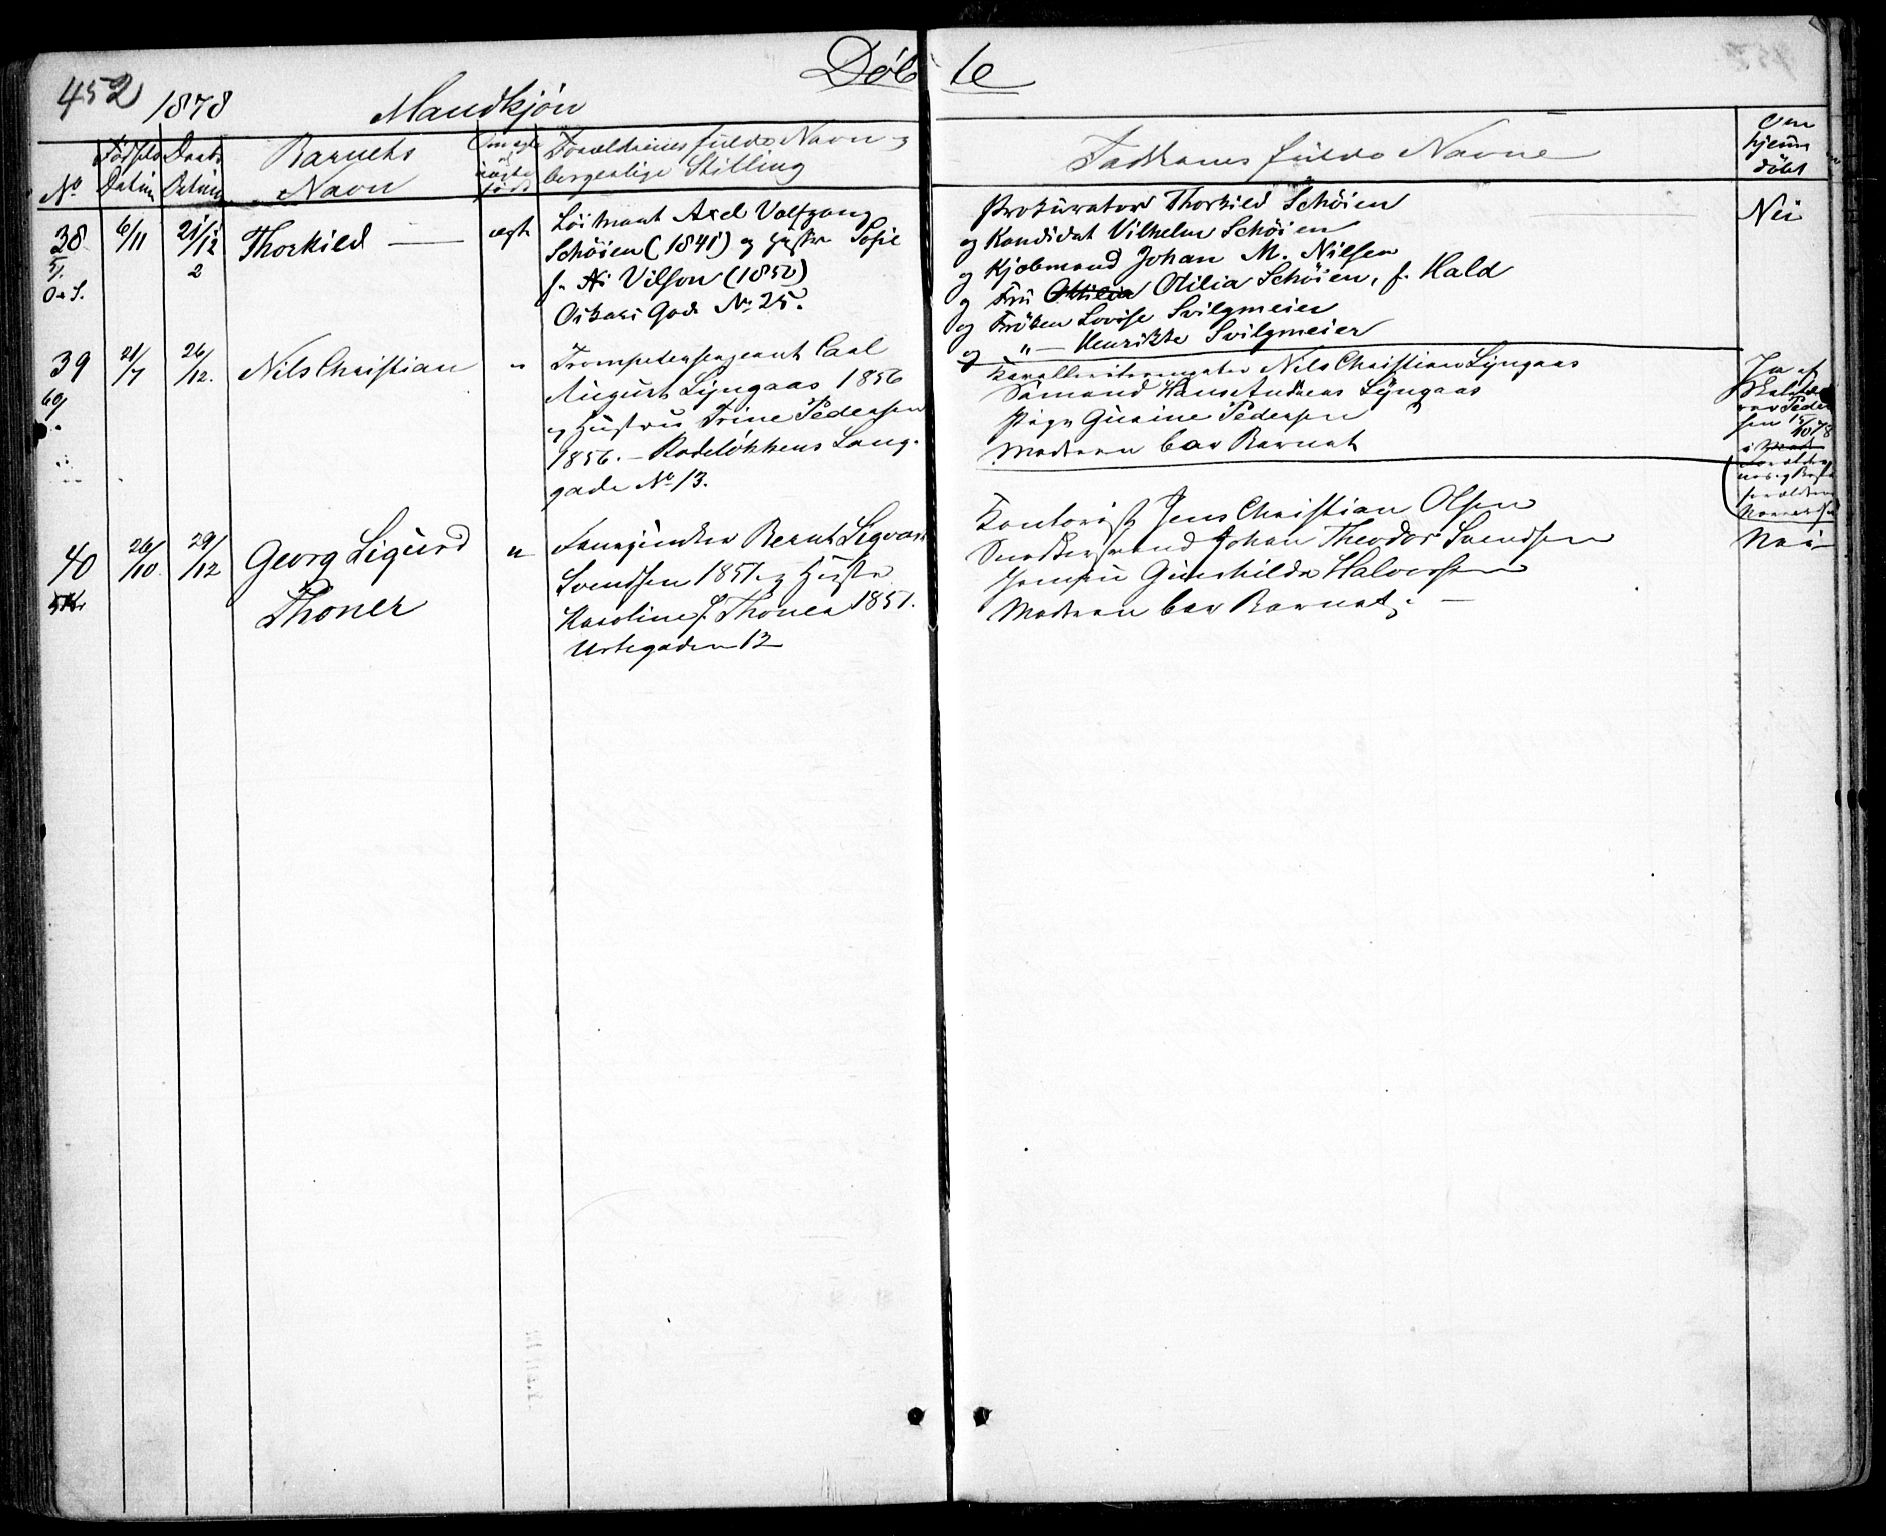 452
Døb te
1878 Mandkjøn
No
Fødsels Datum
Daabs Datum
Barnets Navn
Om ægte ei ægte født
Forældrenes fulde Navn og
borgerlige Stilling
Faddernes fulde Navne
Om hjemmedøbt
38
6/11
21/12
2
Thorkild
ægte
Løitnant Axel Volfgang
Schøien (1841) og Hustru Sofie
f. Vilson (1850)
Oskars Gade No 25.
Prokurator Thorkild Schøien
og Kandidat Vilhelm Schøien
og Kjøbmand Johan M. Nilsen
og Fru Otilia Schøien, f. Hald
og Frøken Lovise Svilgmeier
og " — Henrikke Svilgmeier
Nei
39
60/
21/7
26/12.
Nils Christian
"
Trompetersergeant Carl
August Lyngaas 1856
og Hustru Trine Pedersen
1856. — Rodeløkkens Lang-
gade No 13.
Nils Christian Lyngaas
Sømand Hans Andreas Lyngaas
Pige Pedersen
Moderen bar Barnet
Ja af
Peder
sen 15/10 78
40
26/10
29/12
Georg Sigurd
Thoner
"
Bernt Sigvart
Svendsen 1851 og Hustru
Karoline f. Thoner 1851.
Urtegaden 12
Kontorist Jens Christian Olsen
Snedkersvend Johan Theodor Svendsen
Jomfru Gunhilda Halvorsen
Moderen bar Barnet. —
Nei